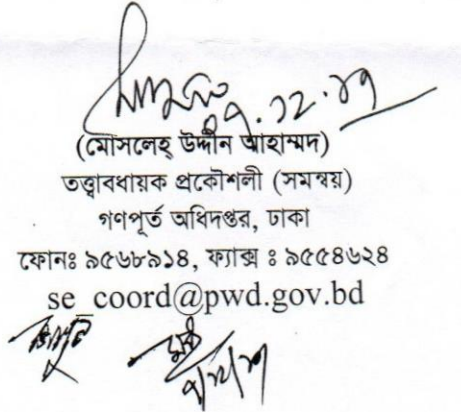 ০৭.১২.১৭
(মোসলেহ্ উদ্দীন আহাম্মদ)
তত্ত্বাবধায়ক প্রকৌশলী (সমন্বয়)
গণপূর্ত অধিদপ্তর, ঢাকা
ফোনঃ ৯৫৬৮৯১৪, ফ্যাক্স ঃ ৯৫৫৪৬২৪
se_coord@pwd.gov.bd